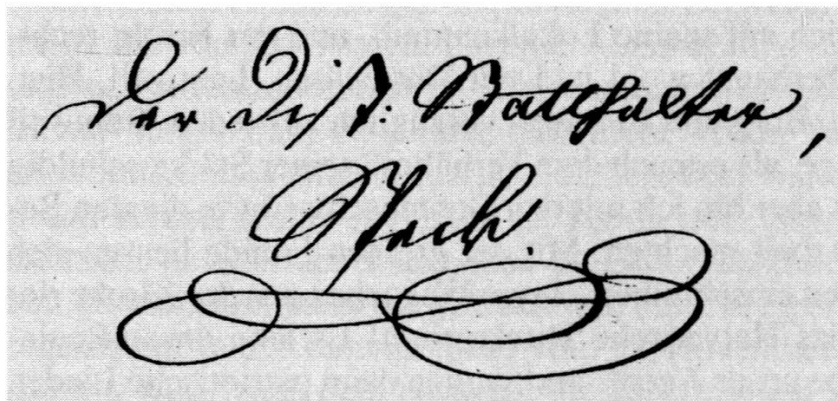 Der Dist: Statthalter,
Stech.